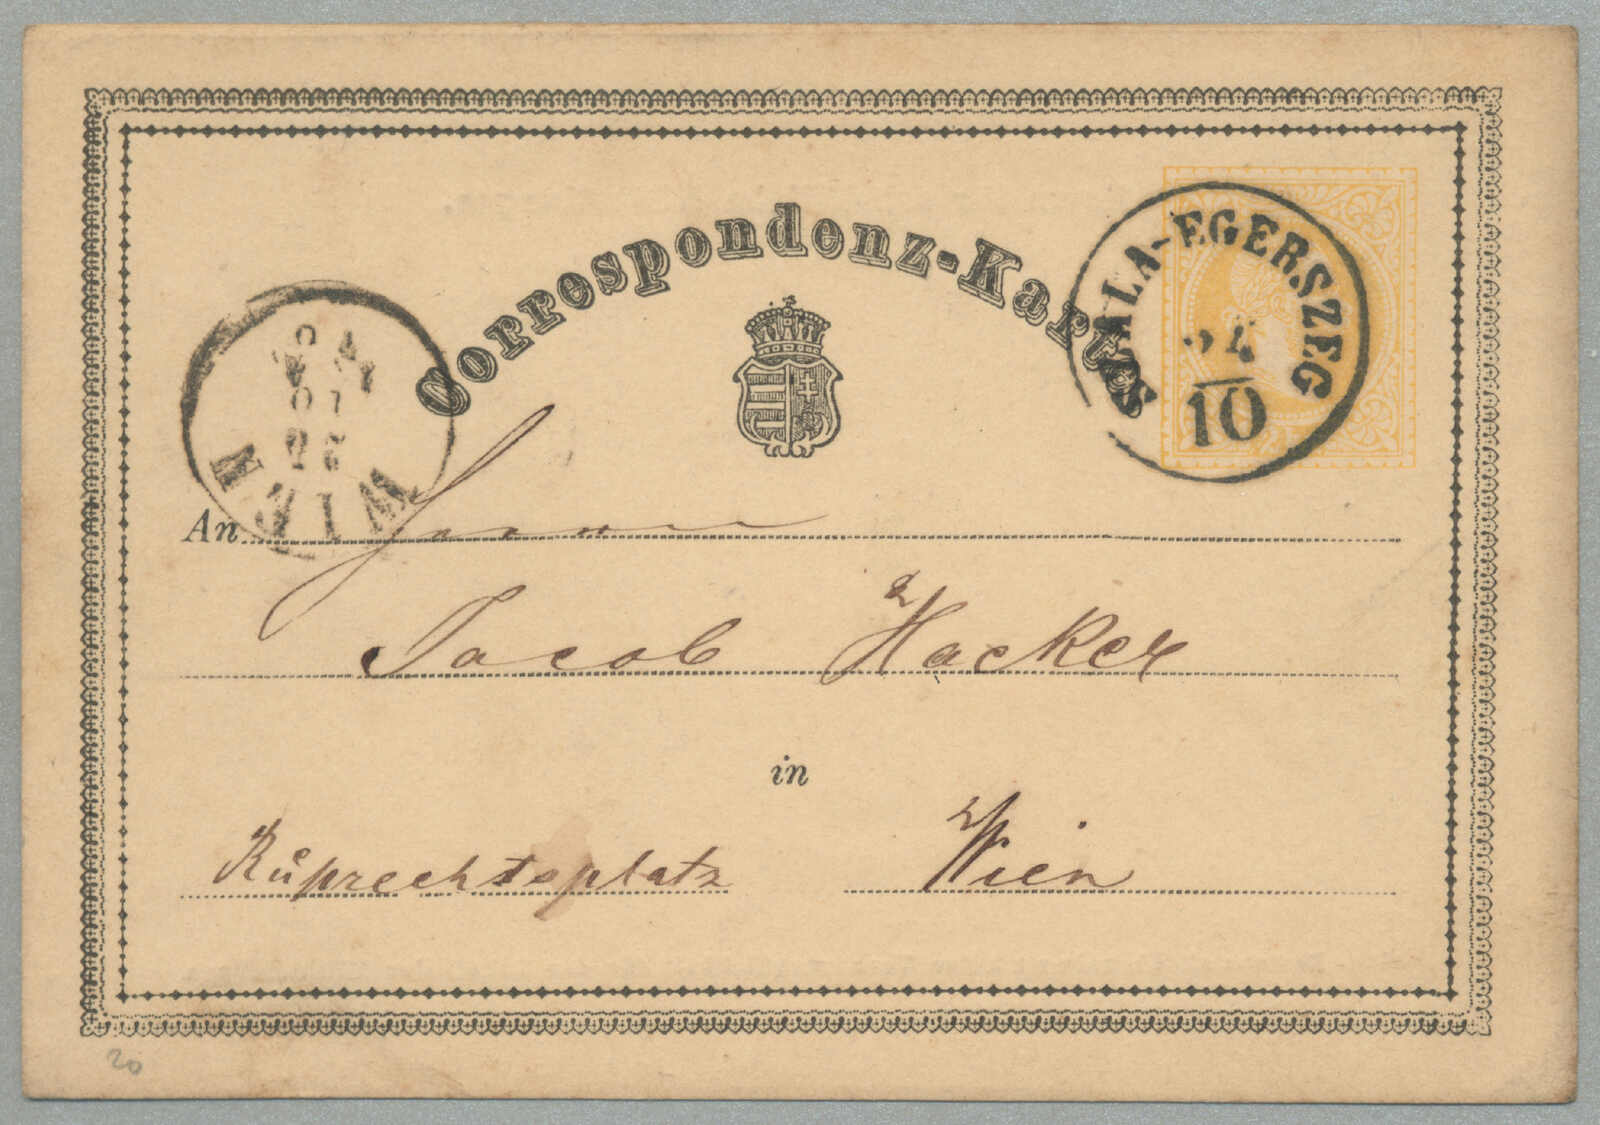 Correspondenz-Karte
SZALA-EGERSZEG
24
10
WIEN
10
An Herrn
Jacob Hacker
in
Ruprechtsplatz Wien
20